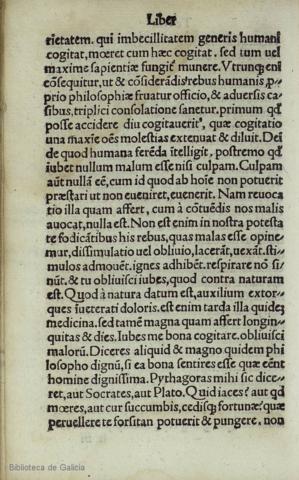 Liber
rietatem. qui imbecillitatem generis humani
cogitat, mœret cum hæc cogitat, sed tum uel
maxime sapientiæ fungit᷑ munere. Vtrunqꝫ eni
cōsequitur, ut & cōsiderādis rebus humanis ꝓ-
prio philosophiæ fruatur officio, & aduersis ca-
sibus, triplici consolatione sanetur, primum qđ
posse accidere diu cogitauerit, quæ cogitatio
una maxīe oēs molestias extenuat & diluit. Dei
de quod humana ferēda ītelligit, postremo qđ
iubet nullum malum esse nisi culpam. Culpam
aūt nullā eē, cum id quod ab hoīe non potuerit
præstari ut non eueniret, euenerit. Nam reuoca
tio illa quam affert, cum à cōtuēdis nos malis
auocat, nulla est. Non est enim in nostra potesta
te fodicātibus his rebus, quas malas esse opine-
mur, dissimulatio uel obliuio, lacerāt, uexāt. sti-
mulos admouēt. ignes adhibēt. respirare nō si/
nūt. & tu obliuisci iubes, quod contra naturam
est. Quod à natura datum est, auxilium extor-
ques īueterati doloris. est enim tarda illa quidē
medicina. sed tamē magna quam affert longin-
quitas & dies. Iubes me bona cogitare. obliuisci
malorū. Diceres aliquid & magno quidem phi
losopho dignū, si ea bona sentires esse quæ eēnt
homine dignissima. Pythagoras mihi sic dice-
ret, aut Socrates, aut Plato. Quid iaces? aut qđ
mœres, aut cur succumbis, cedisqꝫ fortunæ? quæ
peruellere te forsitan potuerit & pungere, non
Biblioteca de Galicia